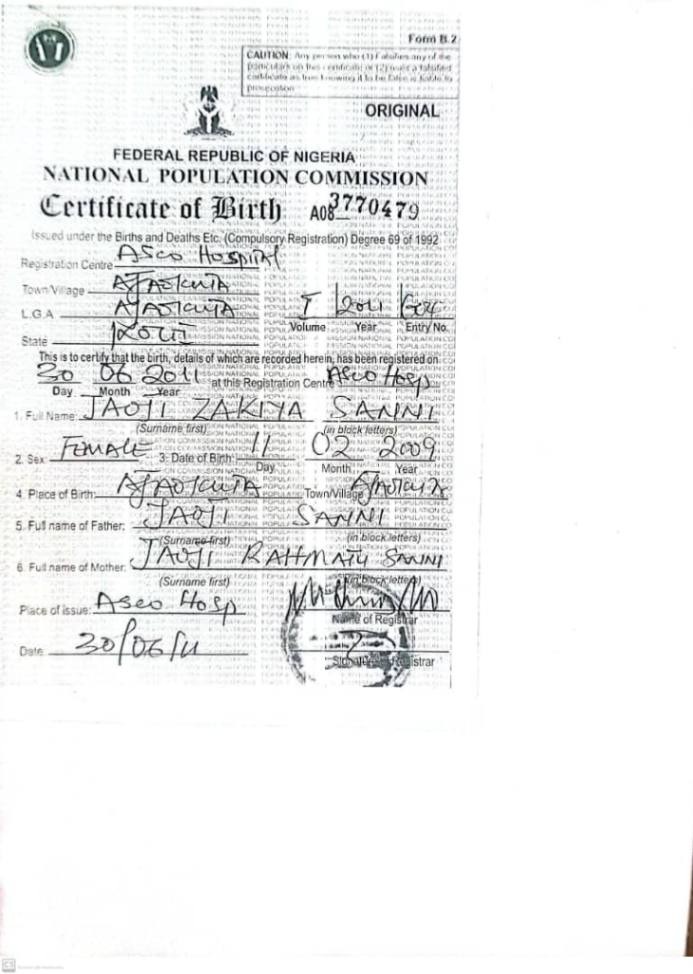 Form B.2
CAUTION: Any person who (1) Falsifies any of the
particulars on this certificate or (2) uses a falsified
certificate as true knowing it to be false is liable to
prosecution
ORIGINAL
FEDERAL REPUBLIC OF NIGERIA
NATIONAL POPULATION COMMISSION
Certificate of Birth A08 3770479
Issued under the Births and Deaths Etc. (Compulsory Registration) Degree 69 of 1992
Registration Centre ASCO HOSPITAL
Town/Village AJAOKUTA
L.G.A AJAOKUTA I 2011
Volume Year Entry No.
State KOGI
This is to certify that the birth, details of which are recorded herein, has been registered on
30 06 2011 at this Registration Centre ASCO HOSP
Day Month Year
1. Full Name: JAOJI ZAKIYA SANNI
(Surname first) (in block letters)
2. Sex FEMALE 3. Date of Birth: 11 02 2009
Day Month Year
4. Place of Birth: AJAOKUTA Town/Village AJAOKUTA
5. Full name of Father: JAOJI SANNI
(Surname first) (in block letters)
6. Full name of Mother: JAOJI RAHMATU SANNI
(Surname first) (in block letters)
Place of issue: ASCO HOSP
Name of Registrar
Date 30/06/11
Signature of Registrar
CS